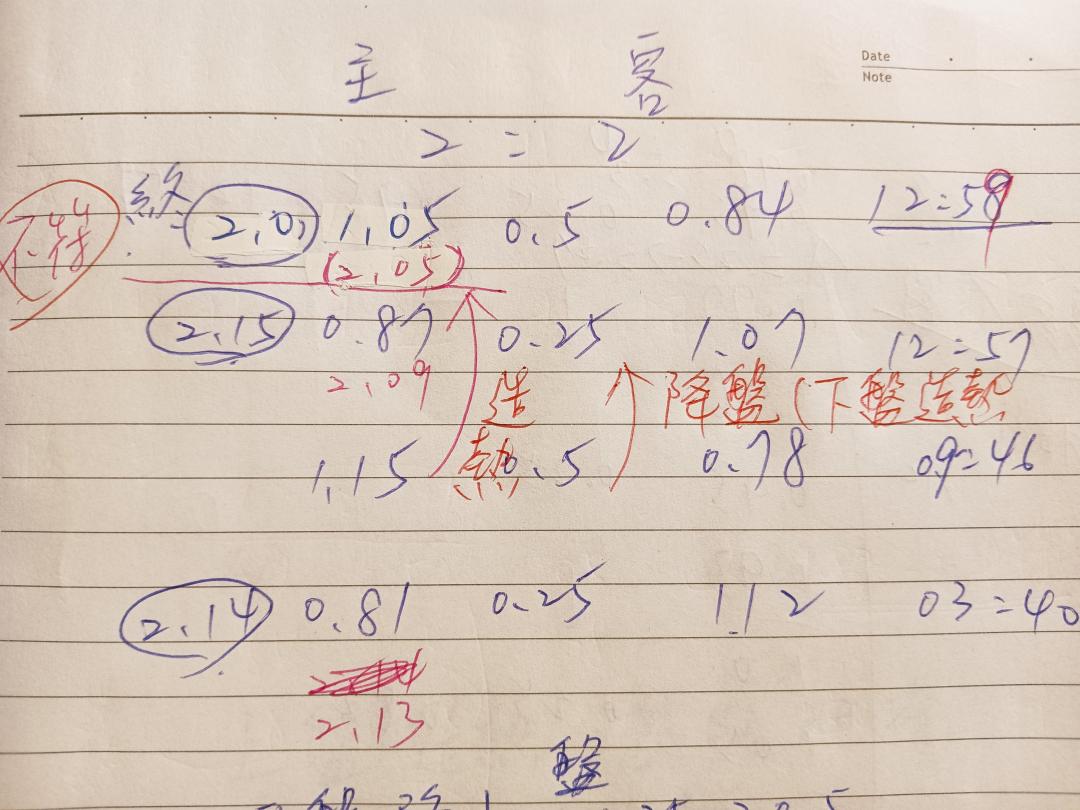 Date
Note
主 客
2 = 2
終= 2.01 1.05 0.5 0.84 12=59
(2.05)
2.15 0.87 0.25 1.07 12=57
2.09 造 降盤(下盤造熱
1.15 熱 0.5 0.78 09=46
2.14 0.81 0.25 1.12 03=40
2.13
盤